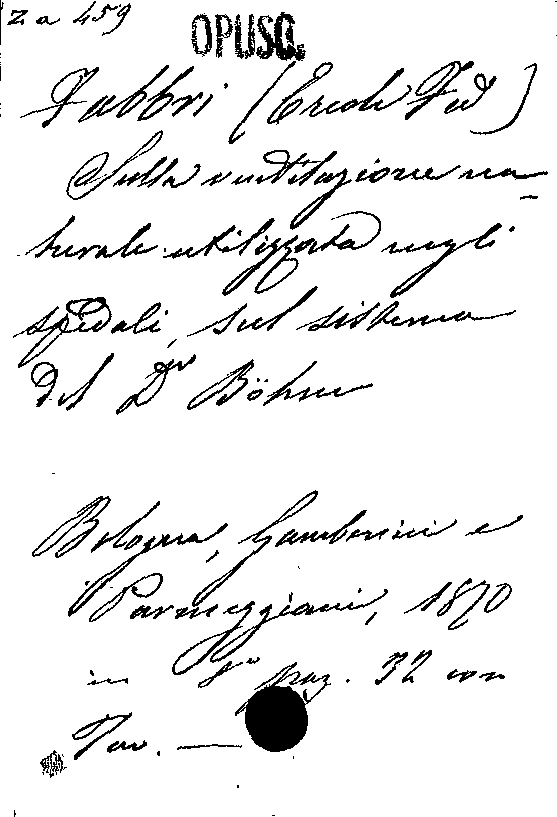 za 459
OPUSC.
Fabbri (Ercole Fed)
Sulla ventilazione na-
turale utilizzata negli
spedali, sul sistema
del Dr Böhm
Bologna, Gamberini e
Parmeggiani, 1870
in 8° pag. 32 con
Tav. —